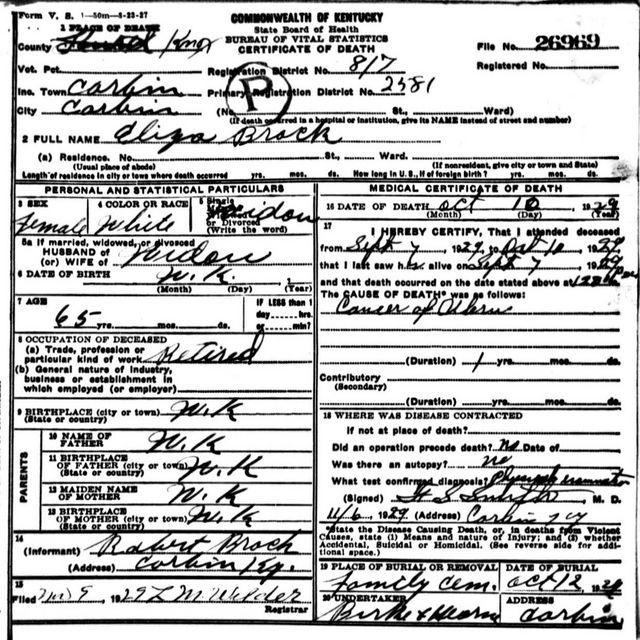 Form V. S. 1-50m-8-23-27
COMMONWEALTH OF KENTUCKY
State Board of Health
BUREAU OF VITAL STATISTICS
CERTIFICATE OF DEATH
1 PLACE OF DEATH
County Knox
File No. 26969
Registered No.
Vot. Pct. Registration District No. 817
Inc. Town Corbin Primary Registration District No. 2581
City Corbin (No. St., Ward)
(If death occurred in a hospital or institution, give its NAME instead of street and number)
P
2 FULL NAME Eliza Brock
(a) Residence. No. St., Ward.
(Usual place of abode) (If nonresident, give city or town and State)
Length of residence in city or town where death occurred yrs. mos. ds. How long in U.S., if of foreign birth? yrs. mos. ds.
PERSONAL AND STATISTICAL PARTICULARS
3 SEX Female
4 COLOR OR RACE White
5 Single Married Widowed or Divorced (Write the word) Widow
5a If married, widowed, or divorced
HUSBAND of
(or) WIFE of Widow
6 DATE OF BIRTH W. K.
(Month) (Day) (Year)
7 AGE 65 yrs. mos. ds.
IF LESS than 1
day hrs.
or min?
8 OCCUPATION OF DECEASED
(a) Trade, profession or
particular kind of work Retired
(b) General nature of industry,
business or establishment in
which employed (or employer)
9 BIRTHPLACE (city or town) W. K
(State or country)
PARENTS
10 NAME OF
FATHER W. K
11 BIRTHPLACE
OF FATHER (city or town) W. K
(State or country)
12 MAIDEN NAME
OF MOTHER W. K
13 BIRTHPLACE
OF MOTHER (city or town) W. K
(State or country)
14
(Informant) Robert Brock
(Address) Corbin Ky.
15
Filed 1929 L M
Registrar
MEDICAL CERTIFICATE OF DEATH
16 DATE OF DEATH Oct 10 1929
(Month) (Day) (Year)
17
I HEREBY CERTIFY, That I attended deceased
from Sept 7, 1929, to Oct 10, 1929
that I last saw h alive on Sept 7, 1929
and that death occurred on the date stated above at
The CAUSE OF DEATH* was as follows:
Cancer of Uterus
(Duration) 1 yrs. mos. ds.
Contributory
(Secondary)
(Duration) yrs. mos. ds.
18 WHERE WAS DISEASE CONTRACTED
If not at place of death?
Did an operation precede death? No Date of
Was there an autopsy? no
What test confirmed diagnosis?
(Signed) M. D.
11/6, 1929 (Address) Corbin Ky
*State the Disease Causing Death, or, in deaths from Violent
Causes, state (1) Means and nature of Injury; and (2) whether
Accidental, Suicidal or Homicidal. (See reverse side for addi-
tional space.)
19 PLACE OF BURIAL OR REMOVAL Family Cem.
DATE OF BURIAL Oct 12, 1929
20 UNDERTAKER
ADDRESS Corbin